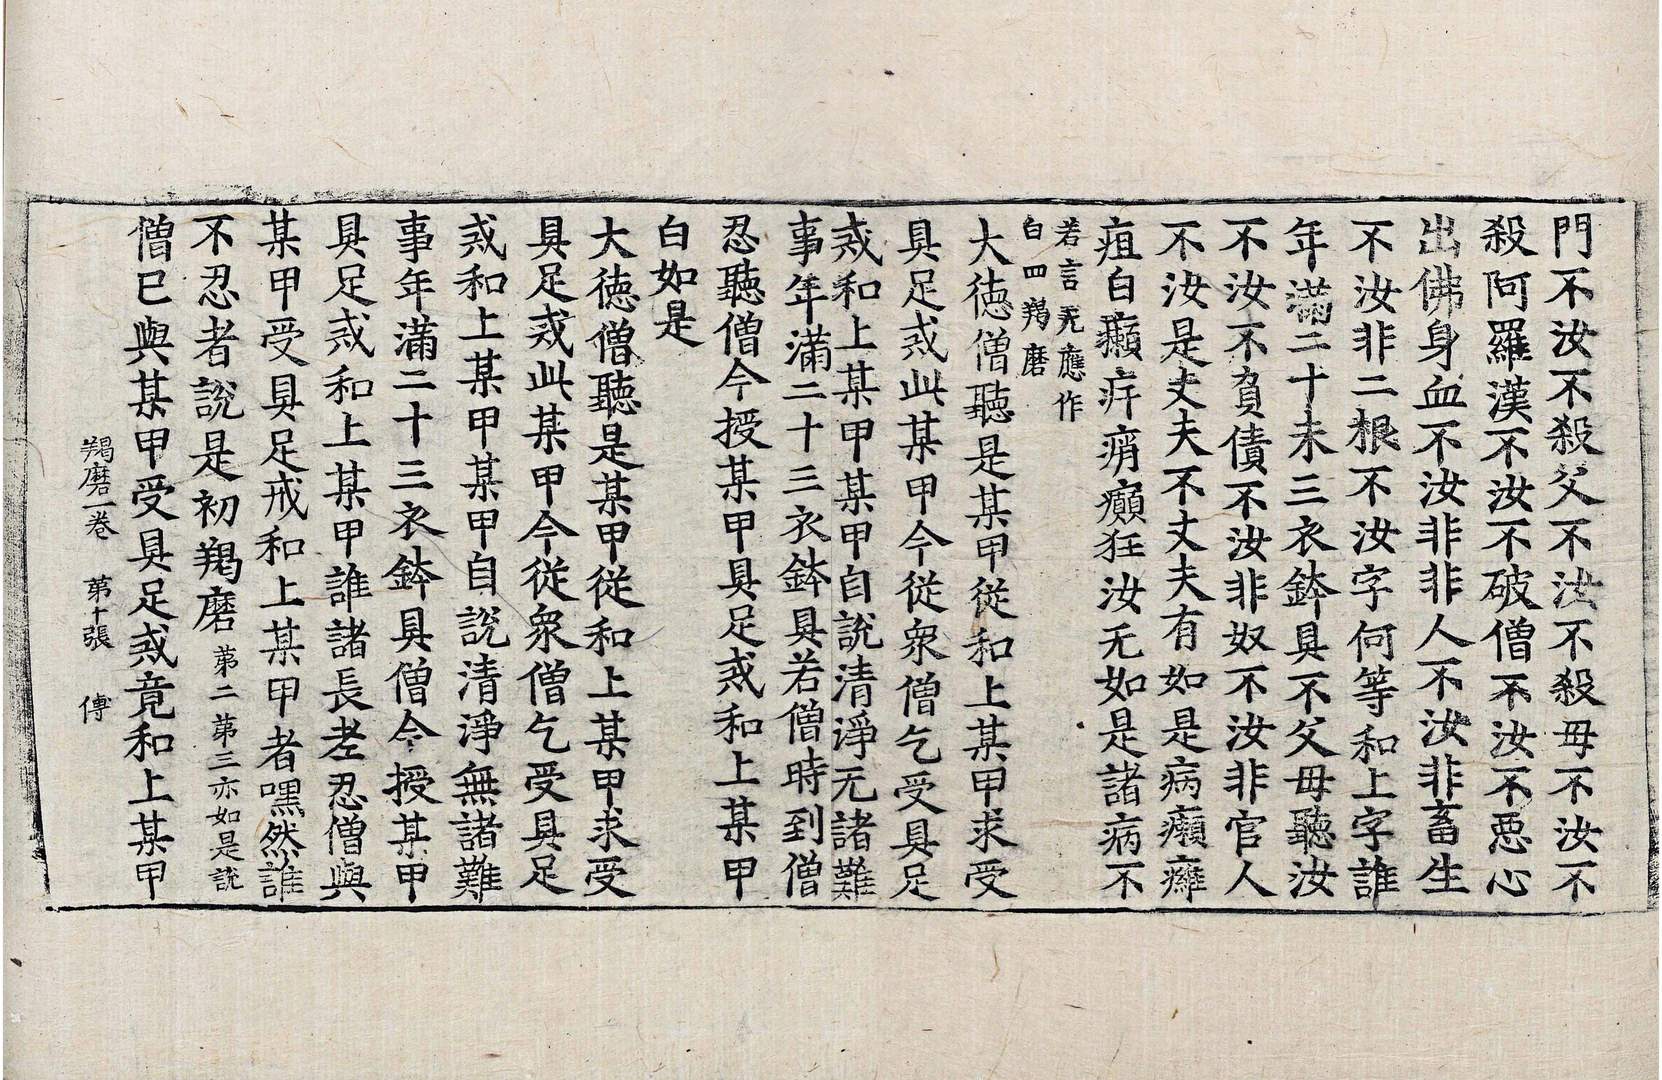 門不汝不殺父不汝不殺母不汝不
殺阿羅漢不汝不破僧不汝不惡心
出佛身血不汝非非人不汝非畜生
不汝非二根不汝字何等和上字誰
年滿二十未三衣鉢具不父母聽汝
不汝不負債不汝非奴不汝非官人
不汝是丈夫不丈夫有如是病癩癰
疽白癩痄痟癲狂汝无如是諸病不
若言无應作
白四羯磨
大德僧聽是某甲從和上某甲求受
具足戒此某甲今從衆僧乞受具足
戒和上某甲某甲自說清淨无諸難
事年滿二十三衣鉢具若僧時到僧
忍聽僧今授某甲具足戒和上某甲
白如是
大德僧聽是某甲從和上某甲求受
具足戒此某甲今從衆僧乞受具足
戒和上某甲某甲自說清淨無諸難
事年滿二十三衣鉢具僧今授某甲
具足戒和上某甲誰諸長老忍僧與
某甲受具足戒和上某甲者嘿然誰
不忍者說是初羯磨第二第三亦如是說
僧已與某甲受具足戒竟和上某甲
羯磨一卷 第十張 傳